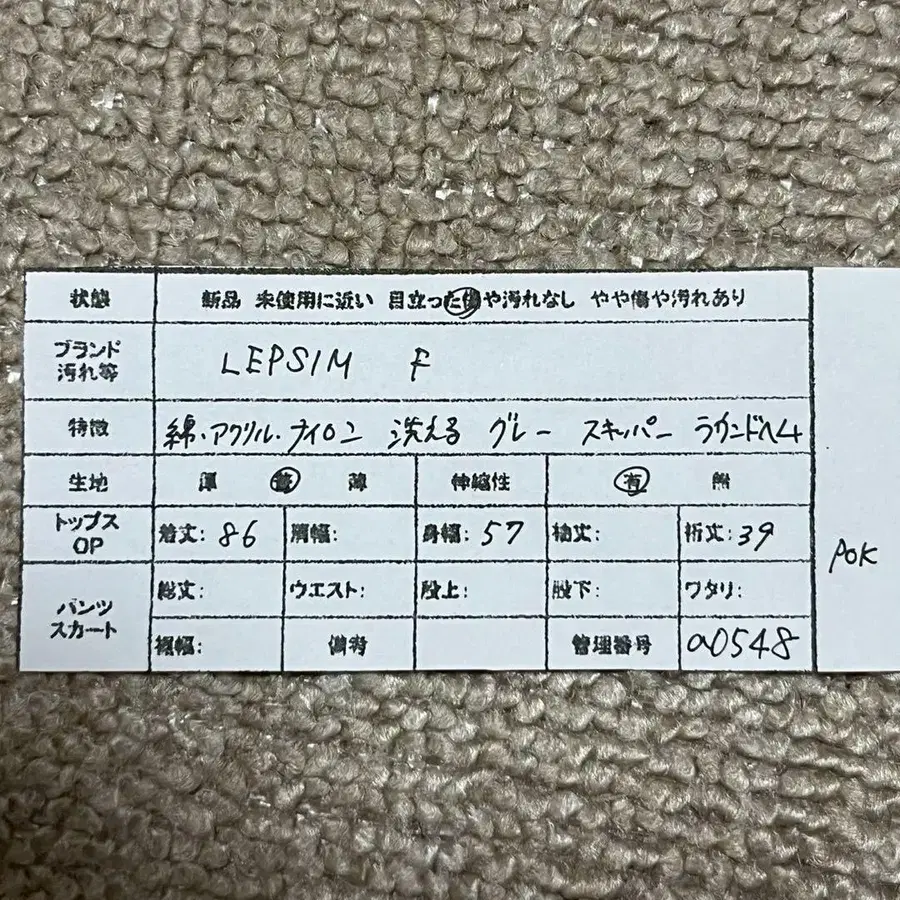 状態 新品 未使用に近い 目立った傷や汚れなし やや傷や汚れあり
ブランド
汚れ等 LEPSIM F
特徴 綿・アクリル・ナイロン 洗える グレー スキッパー ラウンドヘム
生地 厚 普 薄 伸縮性 有 無
トップス
OP 着丈: 86 肩幅: 身幅: 57 袖丈: 裄丈: 39
パンツ
スカート 総丈: ウエスト: 股上: 股下: ワタリ:
裾幅: 備考 管理番号 a0548
POK